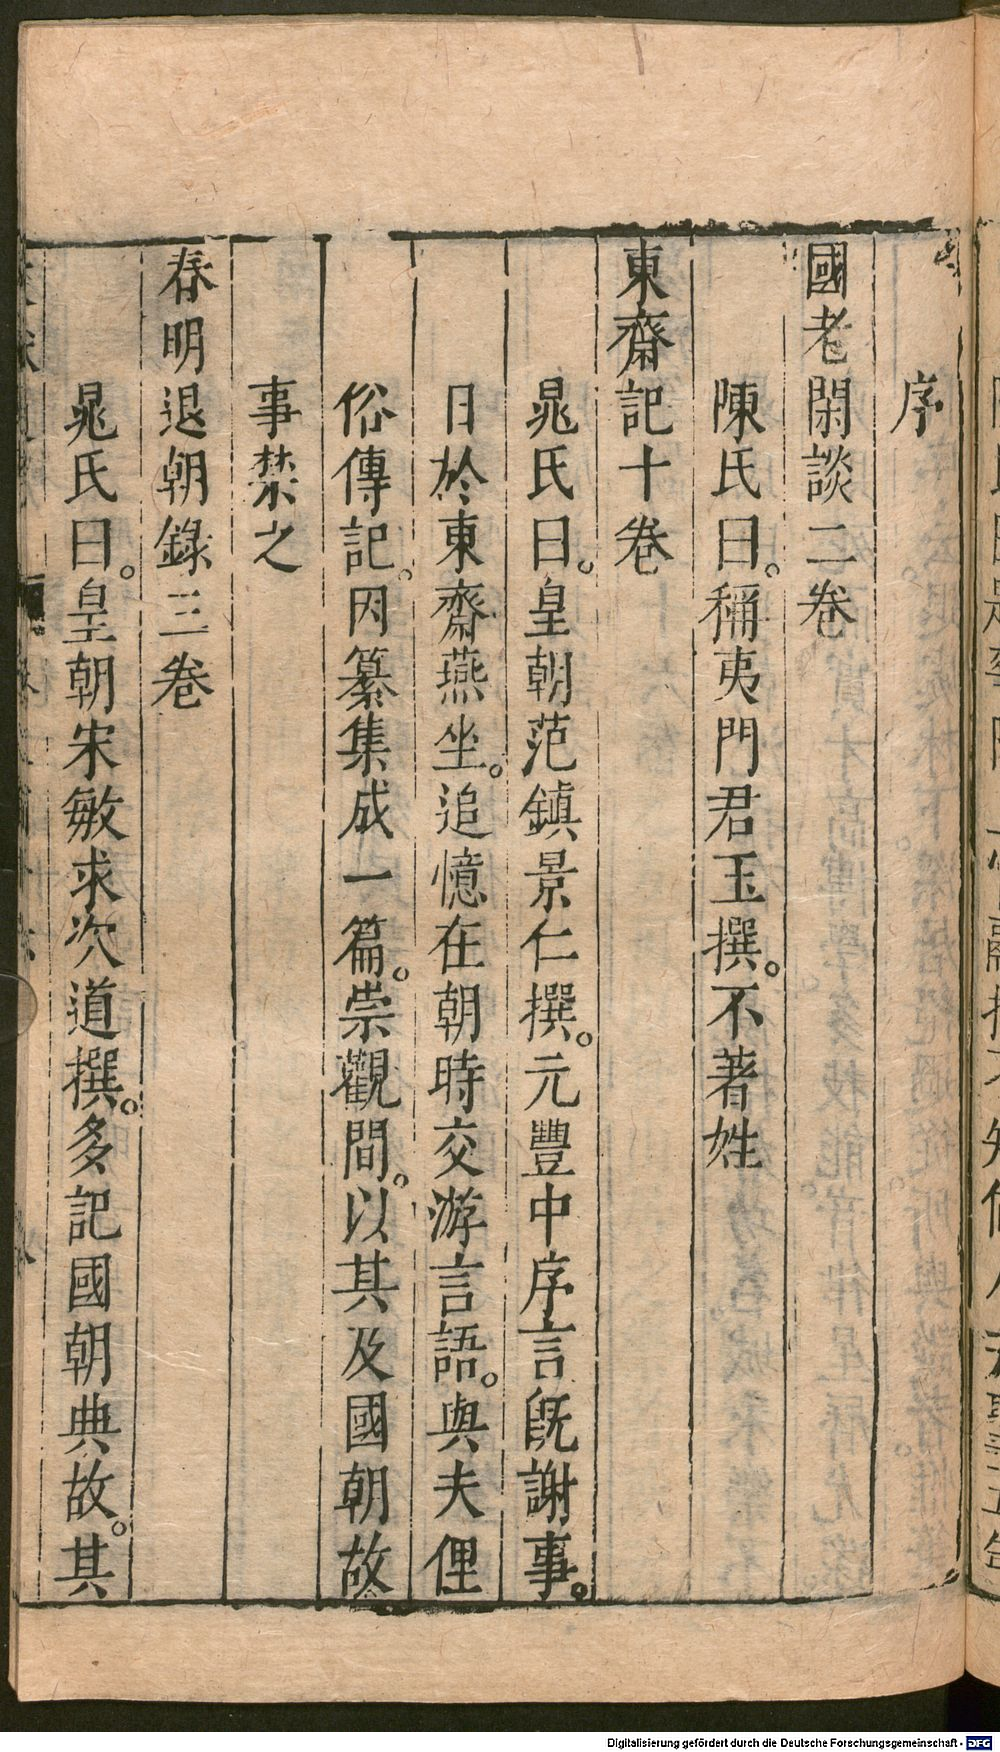 序
國老閑談二卷
陳氏曰。稱夷門君玉撰。不著姓
東齋記十卷
晁氏曰。皇朝范鎮景仁撰。元豐中序言旣謝事。
日於東齋燕坐。追憶在朝時交游言語。與夫俚
俗傳記。因纂集成一篇。崇觀間。以其及國朝故
事禁之
春明退朝錄三卷
晁氏曰。皇朝宋敏求次道撰。多記國朝典故。其
Digitalisierung gefördert durch die Deutsche Forschungsgemeinschaft - DFG